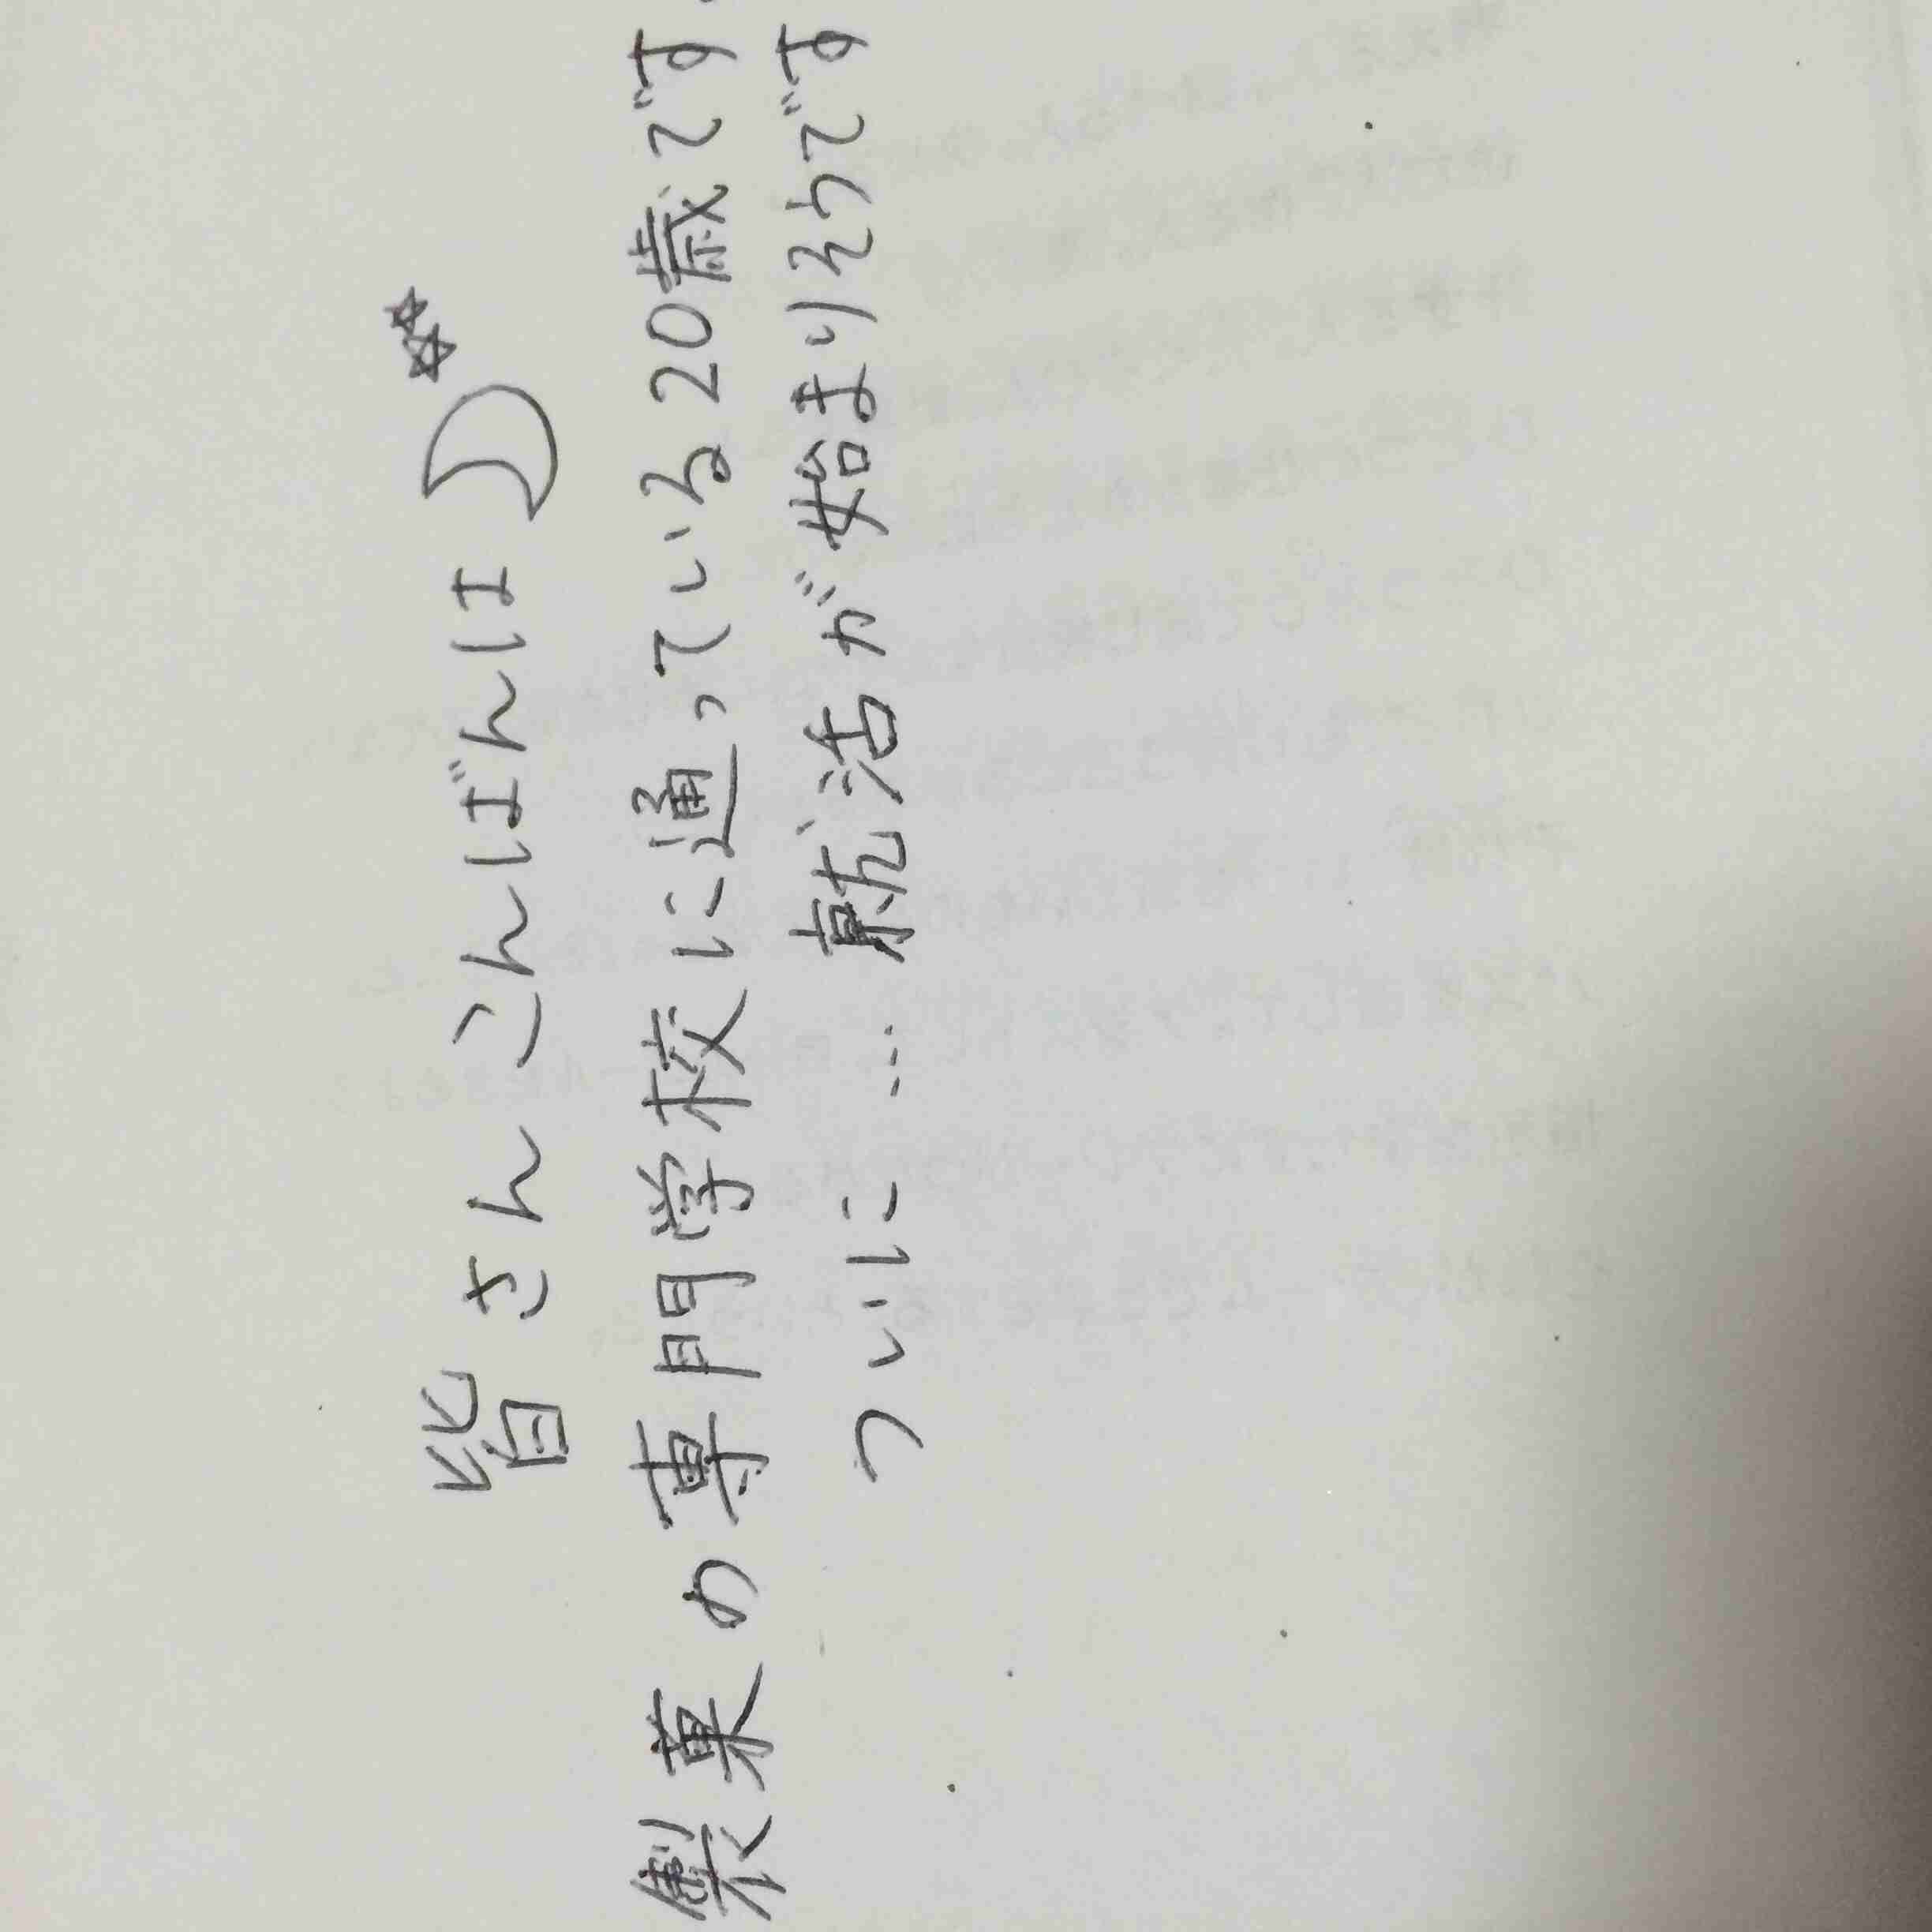 皆さん こんばんは
製菓の専門学校に通っている20歳です
ついに… 就活が始まりそうです